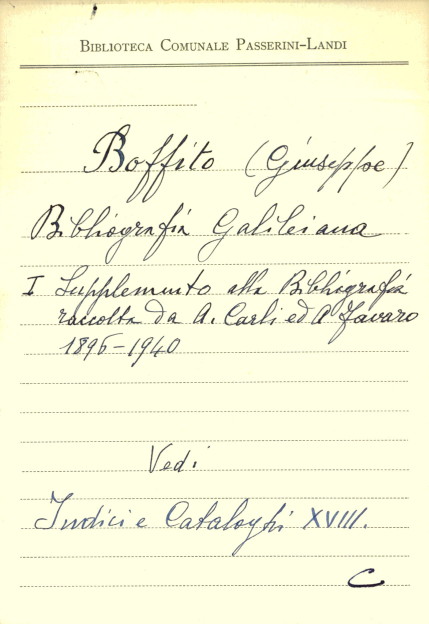 BIBLIOTECA COMUNALE PASSERINI-LANDI
Boffito (Giuseppe)
Bibliografia Galileiana
I Supplemento alla Bibliografia
raccolta da A. Carli ed A Favaro
1896-1940
Vedi
Indici e Cataloghi XVIII.
C